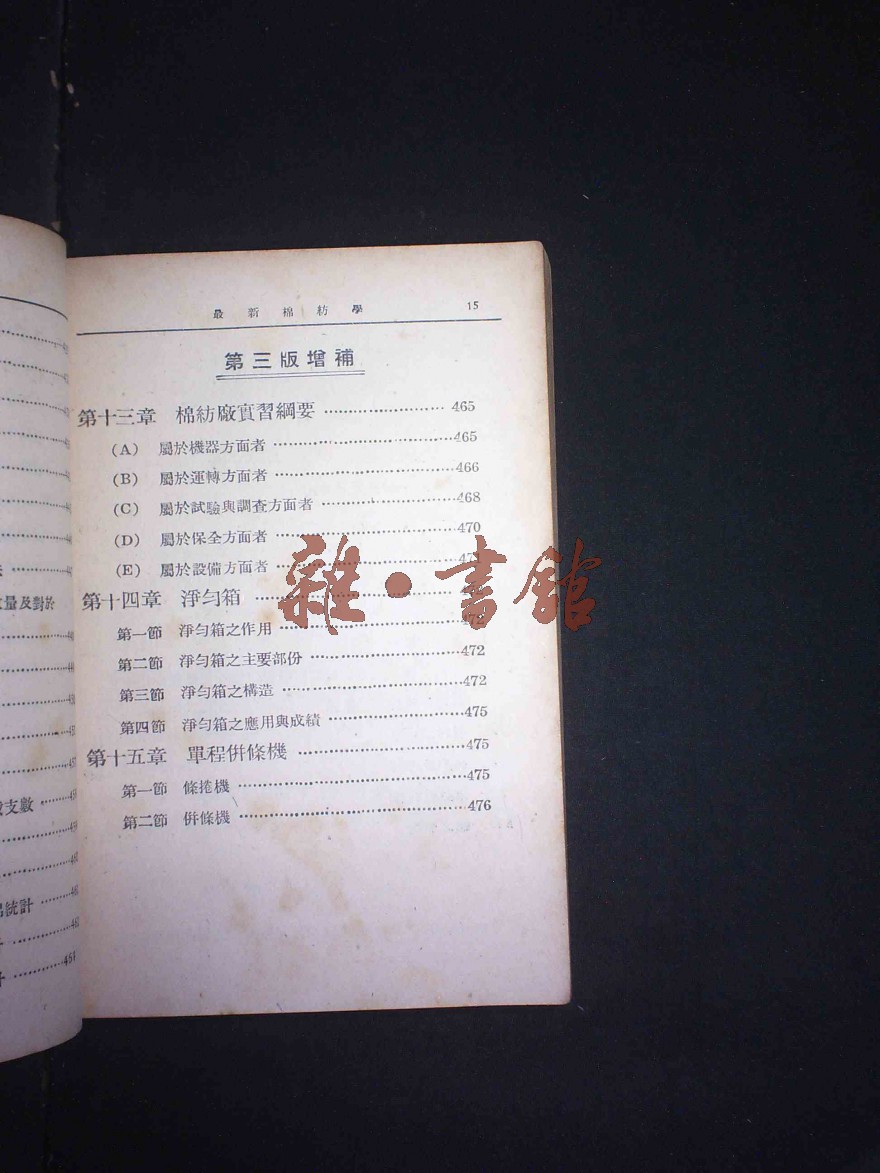 最新棉紡學 15
第三版增補
第十三章 棉紡廠實習綱要 …………………… 465
(A) 屬於機器方面者 …………………… 465
(B) 屬於運轉方面者 …………………… 466
(C) 屬於試驗與調查方面者 …………………… 468
(D) 屬於保全方面者 …………………… 470
(E) 屬於設備方面者 ……………………
第十四章 淨勻箱 ……………………
第一節 淨勻箱之作用 …………………… 472
第二節 淨勻箱之主要部份 …………………… 472
第三節 淨勻箱之構造 …………………… 472
第四節 淨勻箱之應用與成績 …………………… 475
第十五章 單程併條機 …………………… 475
第一節 條捲機 …………………… 475
第二節 併條機 …………………… 476
雜•書館
量及對於
支數
統計